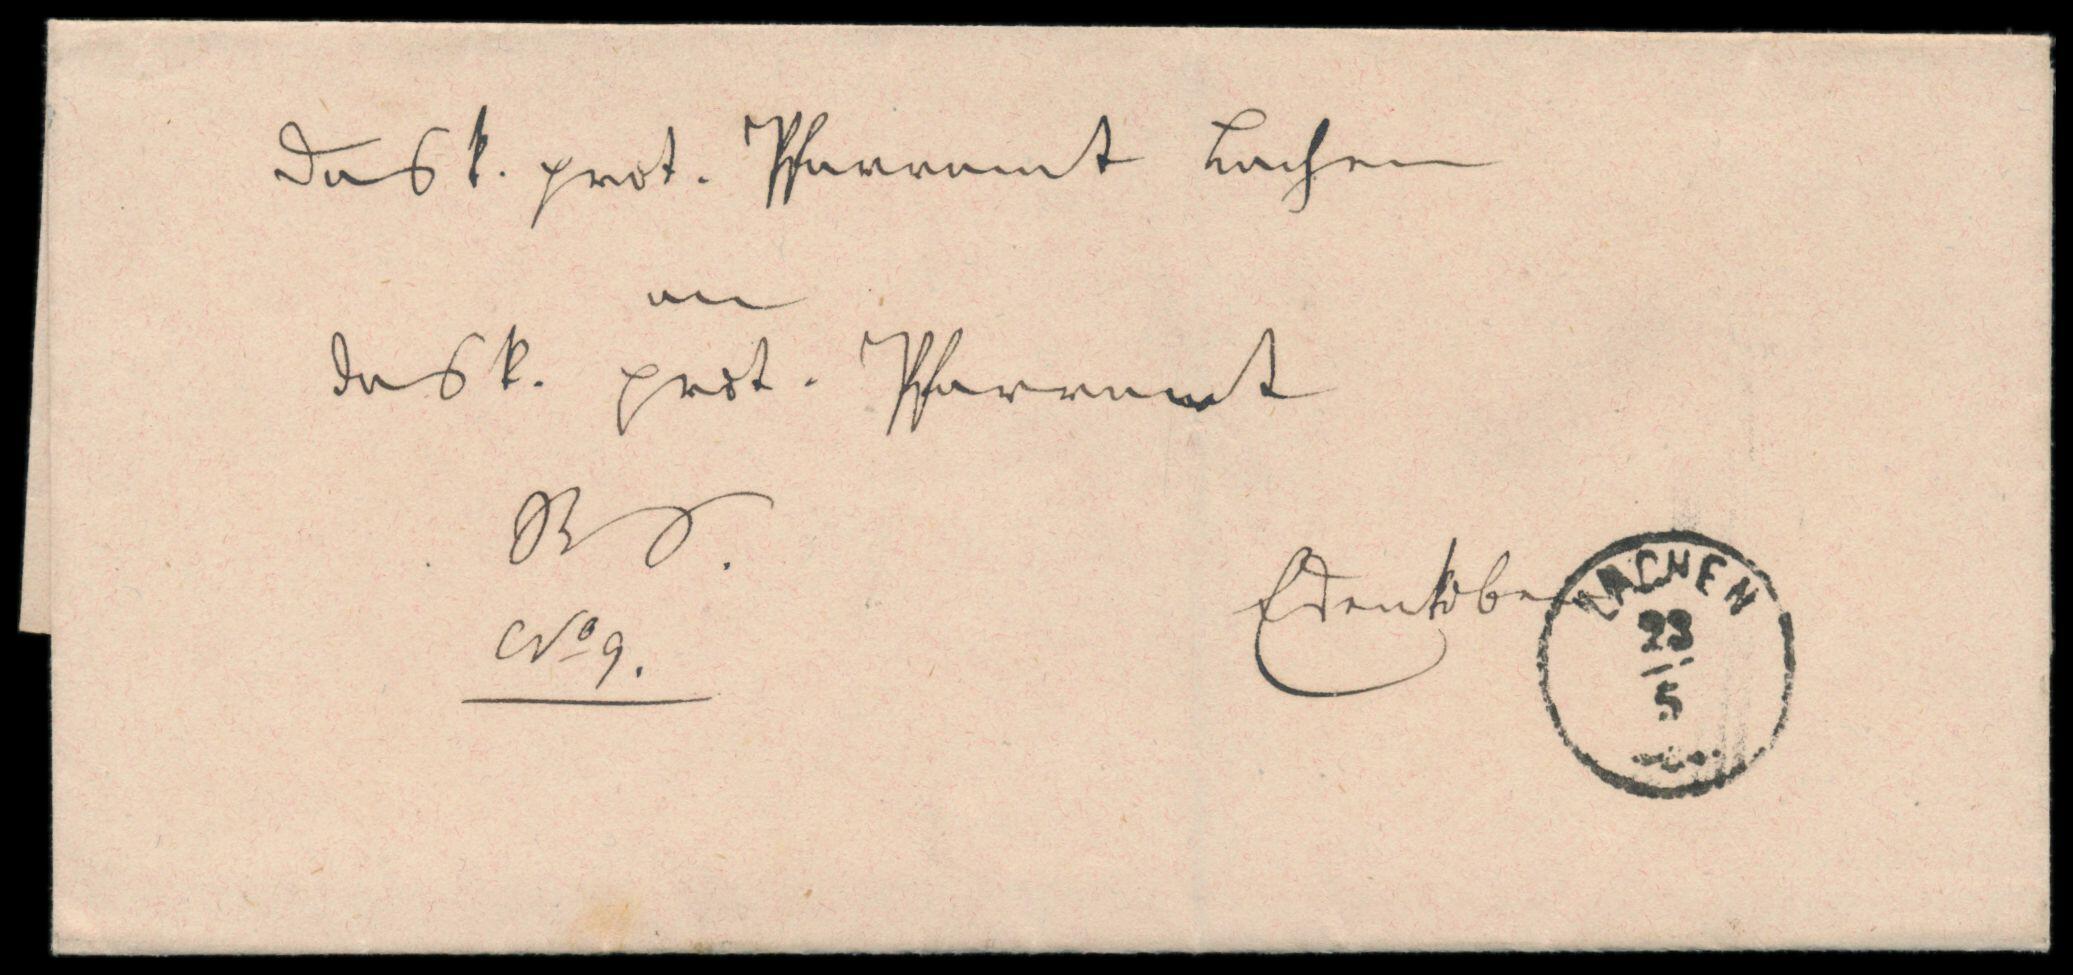 Das k. prot. Pfarramt Lachen
an
das k. prot. Pfarramt
R S.
No 9.
Edenkoben
LACHEN
23
5